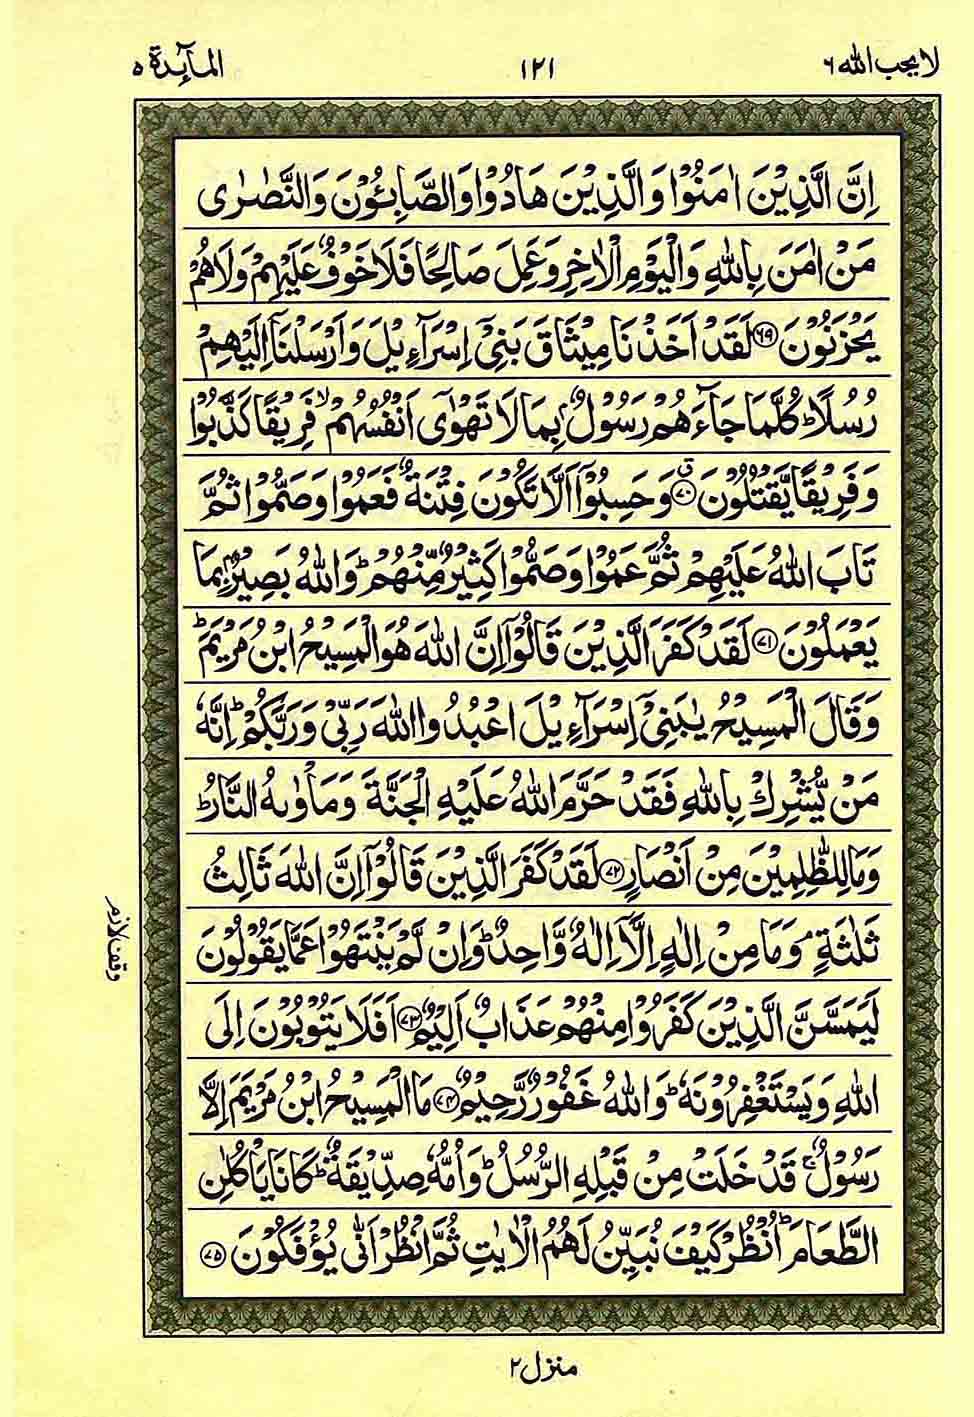 لا يحب الله ٦
١٢١
المآئدة ٥
اِنَّ الَّذِيْنَ اٰمَنُوْا وَالَّذِيْنَ هَادُوْا وَالصَّابِـُٔوْنَ وَالنَّصٰرٰى
مَنْ اٰمَنَ بِاللّٰهِ وَالْيَوْمِ الْاٰخِرِ وَعَمِلَ صَالِحًا فَلَا خَوْفٌ عَلَيْهِمْ وَلَا هُمْ
يَحْزَنُوْنَ ﴿٦٩﴾ لَقَدْ اَخَذْنَا مِيْثَاقَ بَنِيْٓ اِسْرَآءِيْلَ وَاَرْسَلْنَآ اِلَيْهِمْ
رُسُلًا ؕ كُلَّمَا جَآءَهُمْ رَسُوْلٌۢ بِمَا لَا تَهْوٰٓى اَنْفُسُهُمْ ۙ فَرِيْقًا كَذَّبُوْا
وَفَرِيْقًا يَّقْتُلُوْنَ ﴿٧٠﴾ۗ وَحَسِبُوْٓا اَلَّا تَكُوْنَ فِتْنَةٌ فَعَمُوْا وَصَمُّوْا ثُمَّ
تَابَ اللّٰهُ عَلَيْهِمْ ثُمَّ عَمُوْا وَصَمُّوْا كَثِيْرٌ مِّنْهُمْ ؕ وَاللّٰهُ بَصِيْرٌۢ بِمَا
يَعْمَلُوْنَ ﴿٧١﴾ لَقَدْ كَفَرَ الَّذِيْنَ قَالُوْٓا اِنَّ اللّٰهَ هُوَ الْمَسِيْحُ ابْنُ مَرْيَمَ ؕ
وَقَالَ الْمَسِيْحُ يٰبَنِيْٓ اِسْرَآءِيْلَ اعْبُدُوا اللّٰهَ رَبِّيْ وَرَبَّكُمْ ؕ اِنَّهٗ
مَنْ يُّشْرِكْ بِاللّٰهِ فَقَدْ حَرَّمَ اللّٰهُ عَلَيْهِ الْجَنَّةَ وَمَاْوٰىهُ النَّارُ ؕ
وَمَا لِلظّٰلِمِيْنَ مِنْ اَنْصَارٍ ﴿٧٢﴾ لَقَدْ كَفَرَ الَّذِيْنَ قَالُوْٓا اِنَّ اللّٰهَ ثَالِثُ
ثَلٰثَةٍ ۘ وَمَا مِنْ اِلٰهٍ اِلَّآ اِلٰهٌ وَّاحِدٌ ؕ وَاِنْ لَّمْ يَنْتَهُوْا عَمَّا يَقُوْلُوْنَ
وقف لازم
لَيَمَسَّنَّ الَّذِيْنَ كَفَرُوْا مِنْهُمْ عَذَابٌ اَلِيْمٌ ﴿٧٣﴾ اَفَلَا يَتُوْبُوْنَ اِلَى
اللّٰهِ وَيَسْتَغْفِرُوْنَهٗ ؕ وَاللّٰهُ غَفُوْرٌ رَّحِيْمٌ ﴿٧٤﴾ مَا الْمَسِيْحُ ابْنُ مَرْيَمَ اِلَّا
رَسُوْلٌ ۚ قَدْ خَلَتْ مِنْ قَبْلِهِ الرُّسُلُ ؕ وَاُمُّهٗ صِدِّيْقَةٌ ؕ كَانَا يَاْكُلٰنِ
الطَّعَامَ ؕ اُنْظُرْ كَيْفَ نُبَيِّنُ لَهُمُ الْاٰيٰتِ ثُمَّ انْظُرْ اَنّٰى يُؤْفَكُوْنَ ﴿٧٥﴾
منزل ٢